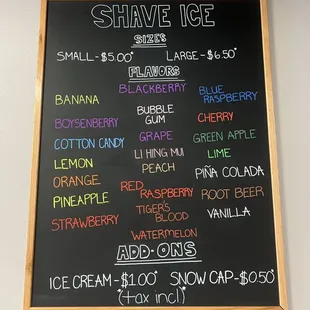 SHAVE ICE
SIZES
SMALL-$5.00* LARGE-$6.50*
FLAVORS
BANANA
BOYSENBERRY
COTTON CANDY
LEMON
ORANGE
PINEAPPLE
STRAWBERRY
BLACKBERRY
BUBBLE
GUM
GRAPE
LI HING MUI
PEACH
RED
RASPBERRY
TIGER'S
BLOOD
WATERMELON
BLUE
RASPBERRY
CHERRY
GREEN APPLE
LIME
PIÑA COLADA
ROOT BEER
VANILLA
ADD-ONS
ICE CREAM-$1.00* SNOW CAP-$0.50*
(tax incl)*